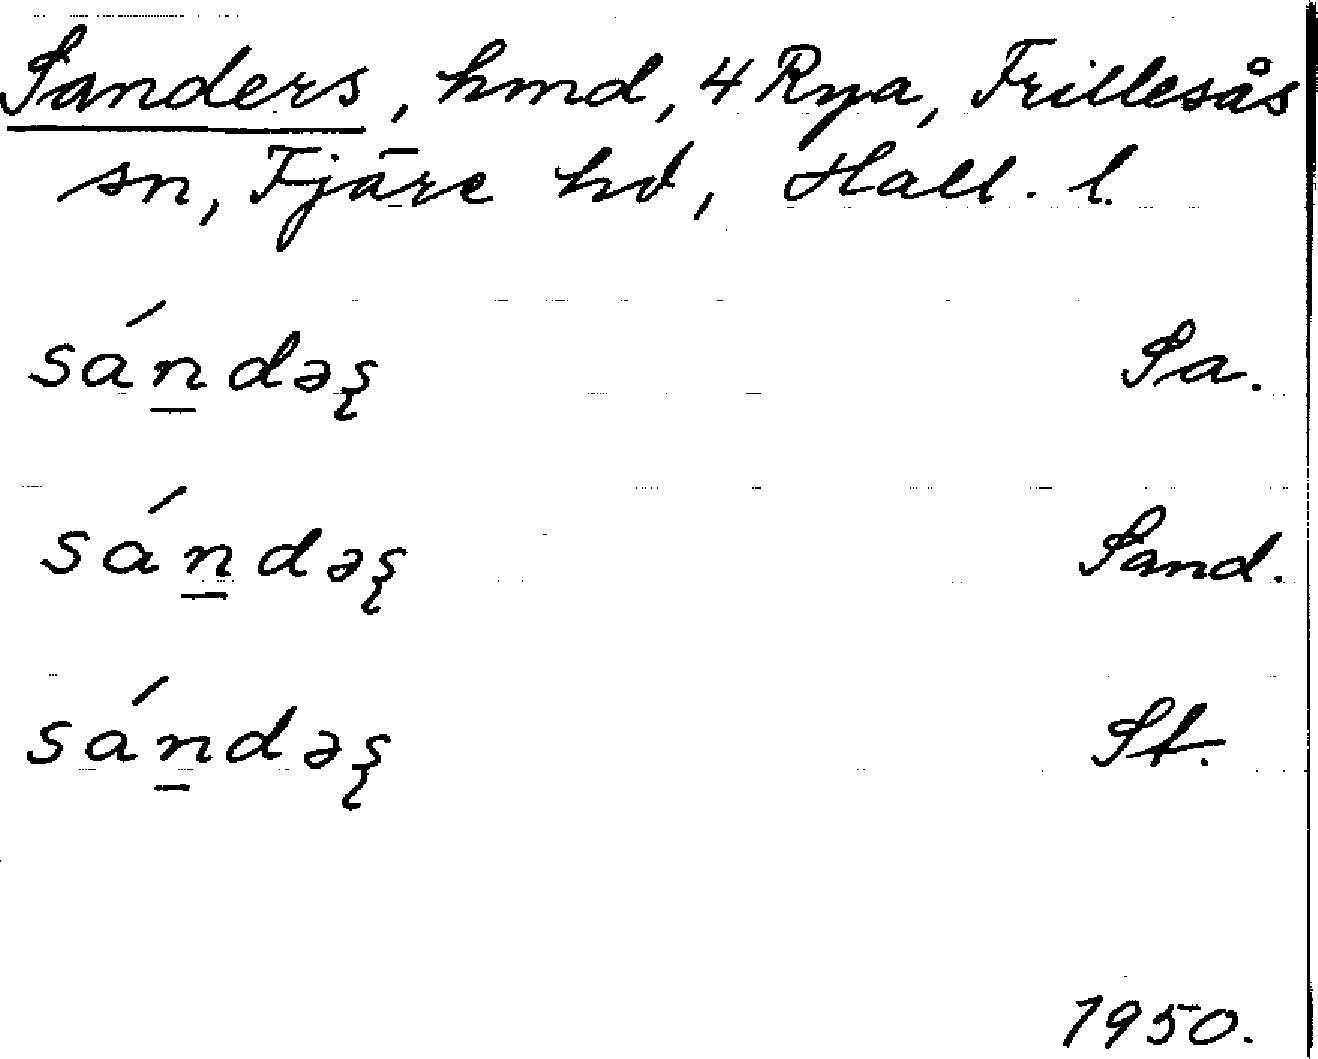 Sanders, hmd, 4 Rya, Frillesås
sn, Fjäre hd, Hall. l.
sán̲dəʂ Sa.
sán̲dəʂ Sand.
sán̲dəʂ St.
1950.